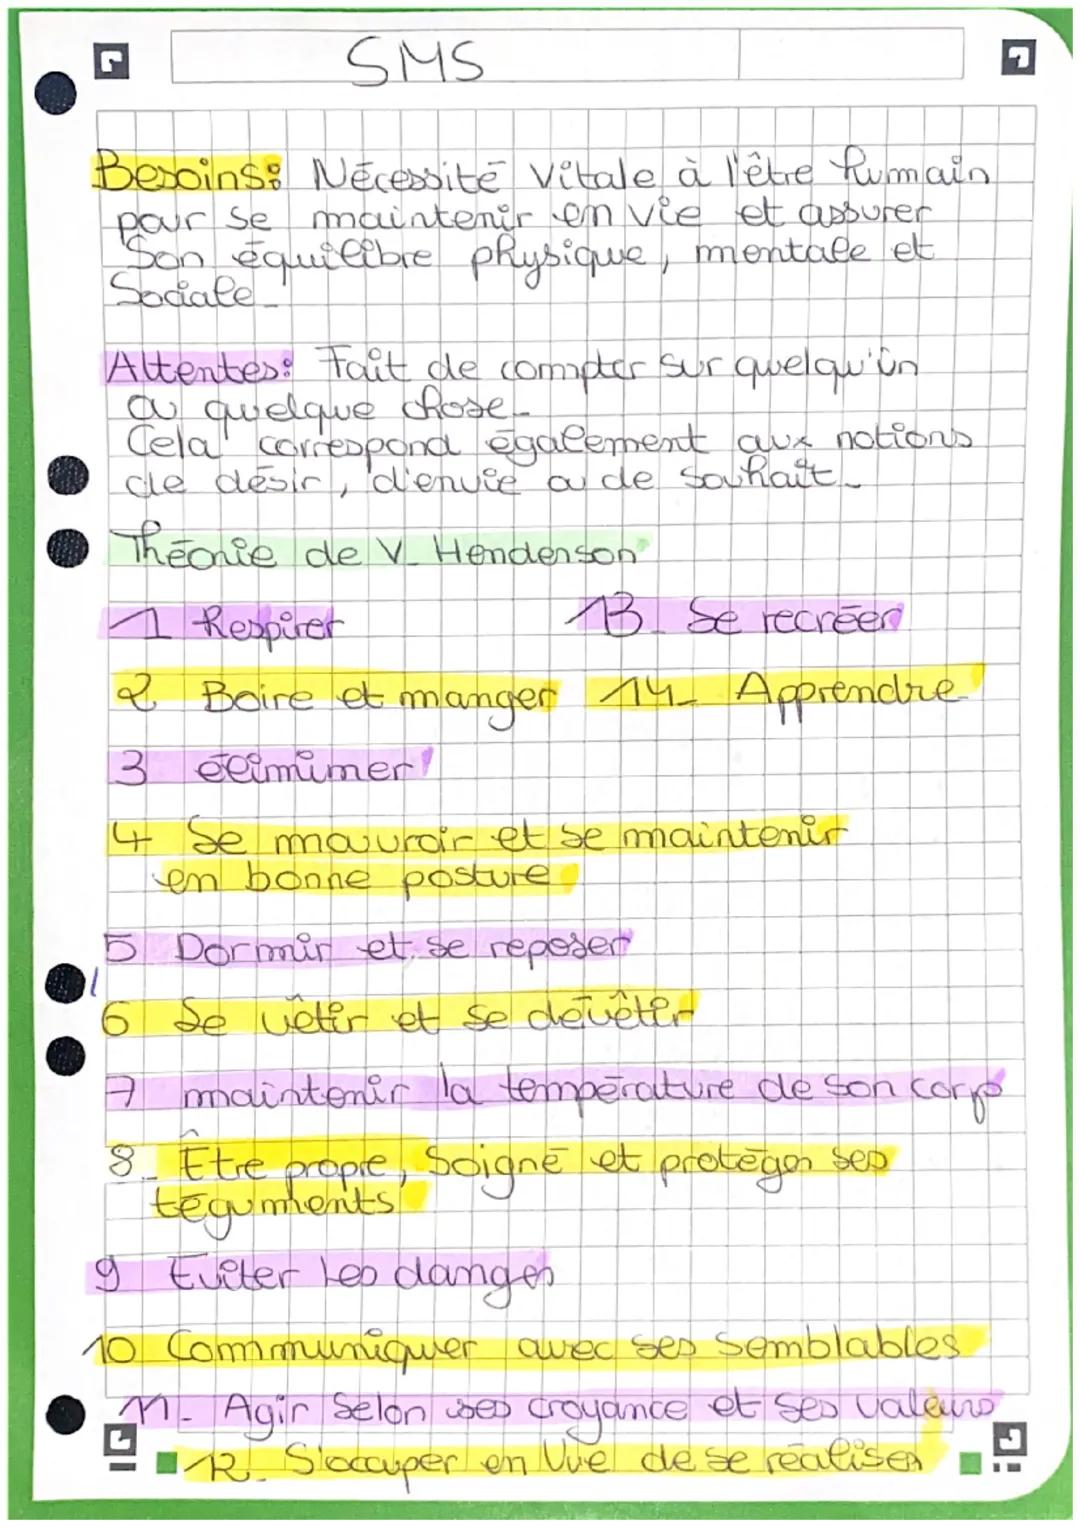 SMS
Besoins: Nécessité vitale à l'être humain
pour se maintenir en vie et assurer
Son équilibre physique, mentale et
Sociale_
Attentes: Fait de compter sur quelqu'un
ou quelque chose_
Cela correspond également aux notions
de désir, d'envie ou de souhait_
Théorie de V_ Henderson
1 Respirer
13_ Se recréer
2 Boire et manger
14_ Apprendre
3 éliminer
4 Se mouvoir et se maintenir
en bonne posture
5 Dormir et se reposer
6 Se vêtir et se dévêtir
7 maintenir la température de son corps
8_ Être propre, Soigné et protéger ses
téguments
9 Eviter les danges
10 Communiquer avec ses semblables
11_ Agir Selon ses croyance et ses valeurs
12_ S'occuper en Vue de se réaliser